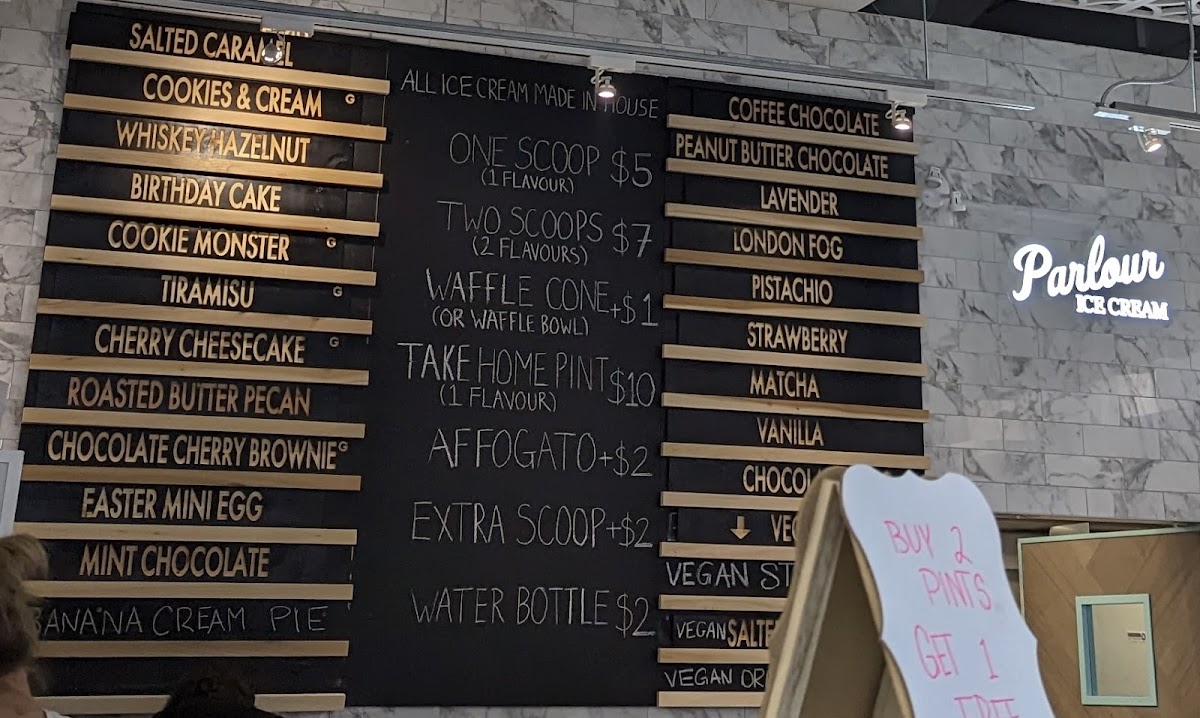 SALTED CARAMEL
COOKIES & CREAM G
WHISKEY HAZELNUT
BIRTHDAY CAKE
COOKIE MONSTER G
TIRAMISU G
CHERRY CHEESECAKE G
ROASTED BUTTER PECAN
CHOCOLATE CHERRY BROWNIE G
EASTER MINI EGG
MINT CHOCOLATE
BANANA CREAM PIE
ALL ICE CREAM MADE IN HOUSE
ONE SCOOP $5
(1 FLAVOUR)
TWO SCOOPS $7
(2 FLAVOURS)
WAFFLE CONE +$1
(OR WAFFLE BOWL)
TAKE HOME PINT $10
(1 FLAVOUR)
AFFOGATO +$2
EXTRA SCOOP +$2
WATER BOTTLE $2
COFFEE CHOCOLATE
PEANUT BUTTER CHOCOLATE
LAVENDER
LONDON FOG
PISTACHIO
STRAWBERRY
MATCHA
VANILLA
VEGAN
VEGAN
VEGAN
Parlour
ICE CREAM
BUY 2
PINTS
GET 1
FREE